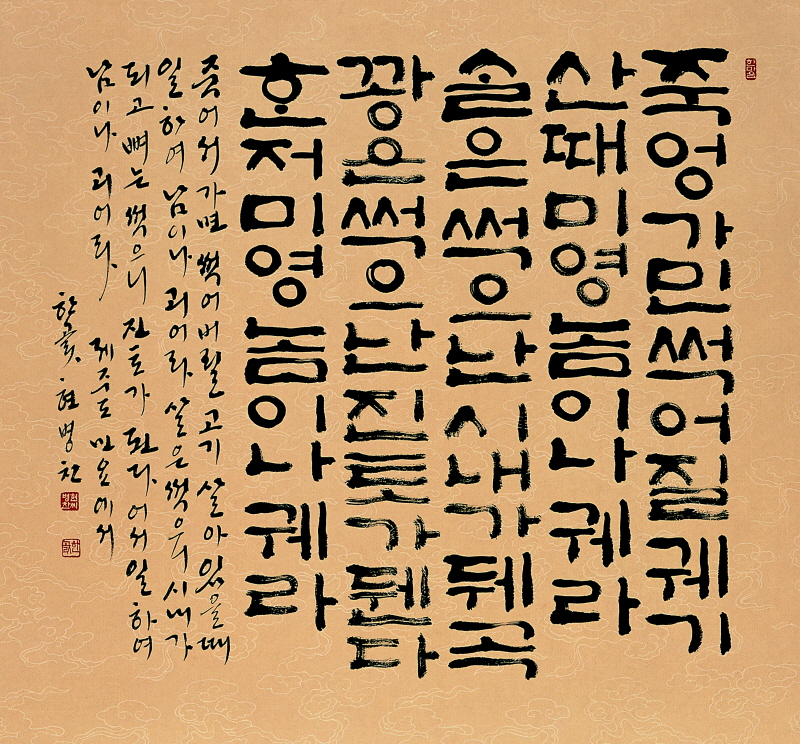 죽엉가민썩어질궤기
산때미영놈이나궤라
솔은썩으난시내가뒈곡
꽝은썩으난진토가뒌다
혼저미영놈이나궤라
죽어서가면썩어버릴고기살아있을때
일하여남이나괴어라.살은썩으니시내가
되고뼈는썩으니진토가된다.어서일하여
남이나괴어라.
제주도민요에서
한곬현병찬